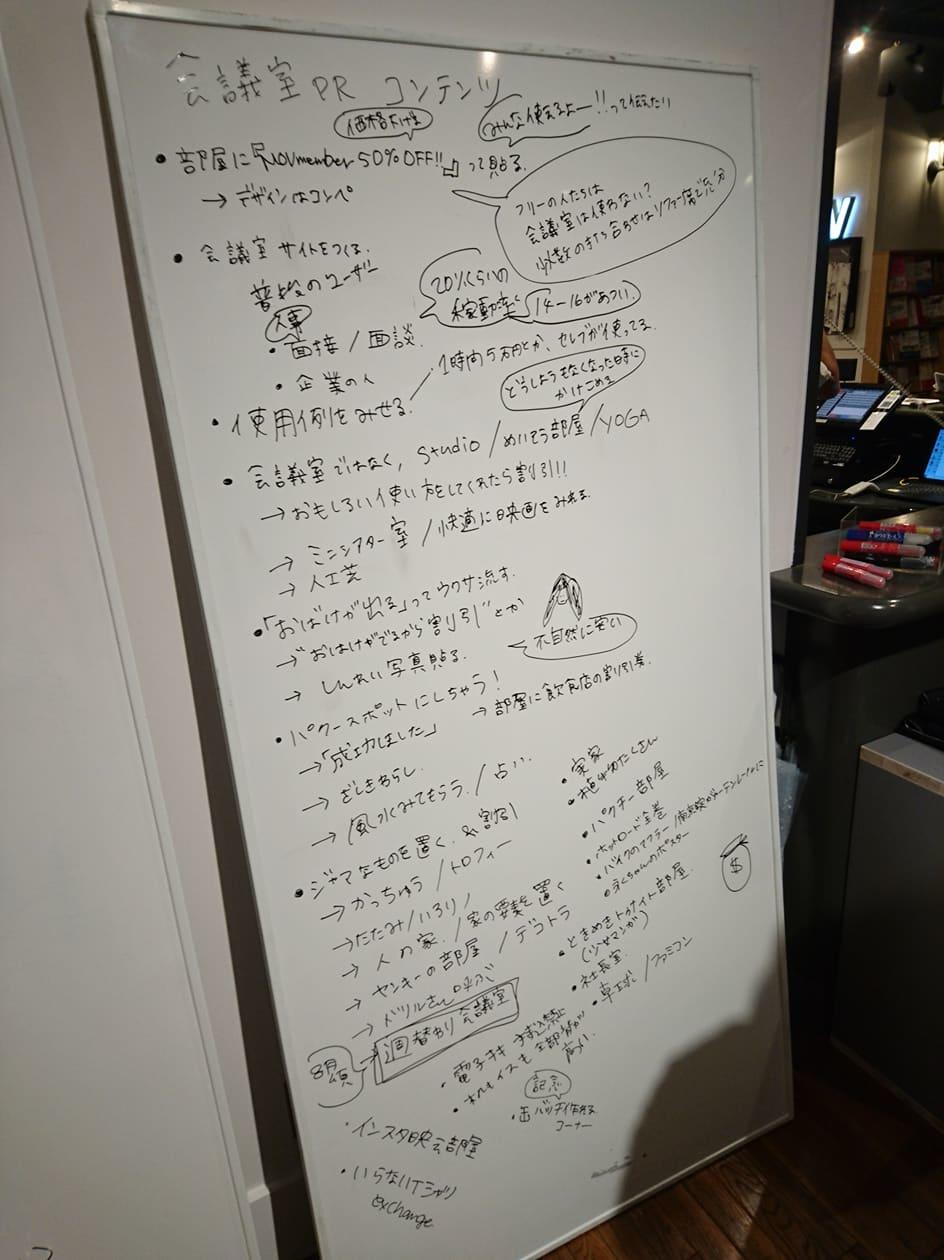 会議室 PR コンテンツ
価格下げる
みんな使えるよー!!って伝えたい
• 部屋に「November 50%OFF!!」って貼る。
→ デザインはコンペ
フリーの人たちは
会議室は使わない?
少数の打ち合わせはソファー席で充分
• 会議室サイトをつくる。
普段のユーザー
人事
• 面接 / 面談
• 企業の人
20%くらいの
稼動率
14-16があつい。
• 使用例をみせる。
1時間5万円とか、セレブが使ってる
どうしようもなくなった時に
かけこめる
• 会議室ではなく, Studio / めいそう部屋 / YOGA
→ おもしろい使い方をしてくれたら割引!!
→ ミニシアター室 / 快適に映画をみれる
→ 人工芝
•「おばけが出る」ってウワサ流す.
→ "おばけがでるから割引"とか
→ しんれい写真貼る.
不自然に安い
• パワースポットにしちゃう!
→「成功しました」
→ 部屋に飲食店の割引券.
→ ざしきわらし
→ 風水みてもらう. / 占い.
• ジャマなものを置く. & 割引
→ かっちゅう / トロフィー
→ たたみ / いろり
→ 人の家. / 家の要素を置く
→ ヤンキーの部屋 / デコトラ
→ ドリルさん呼ぶ
8月頃
週替わり会議室
• 実家
• 植物たくさん
• パクチー部屋
• ホットロード全巻
• バイクのマフラー /
• 永ちゃんのポスター
$
• ときめきトゥナイト部屋.
(少女マンガ)
• 社長室.
• 卓球 / ファミコン
• 電子キー
• も全部
高い.
記念
• 缶バッチ作れる
コーナー
• インスタ映え部屋
• いらないTシャツ
exchange